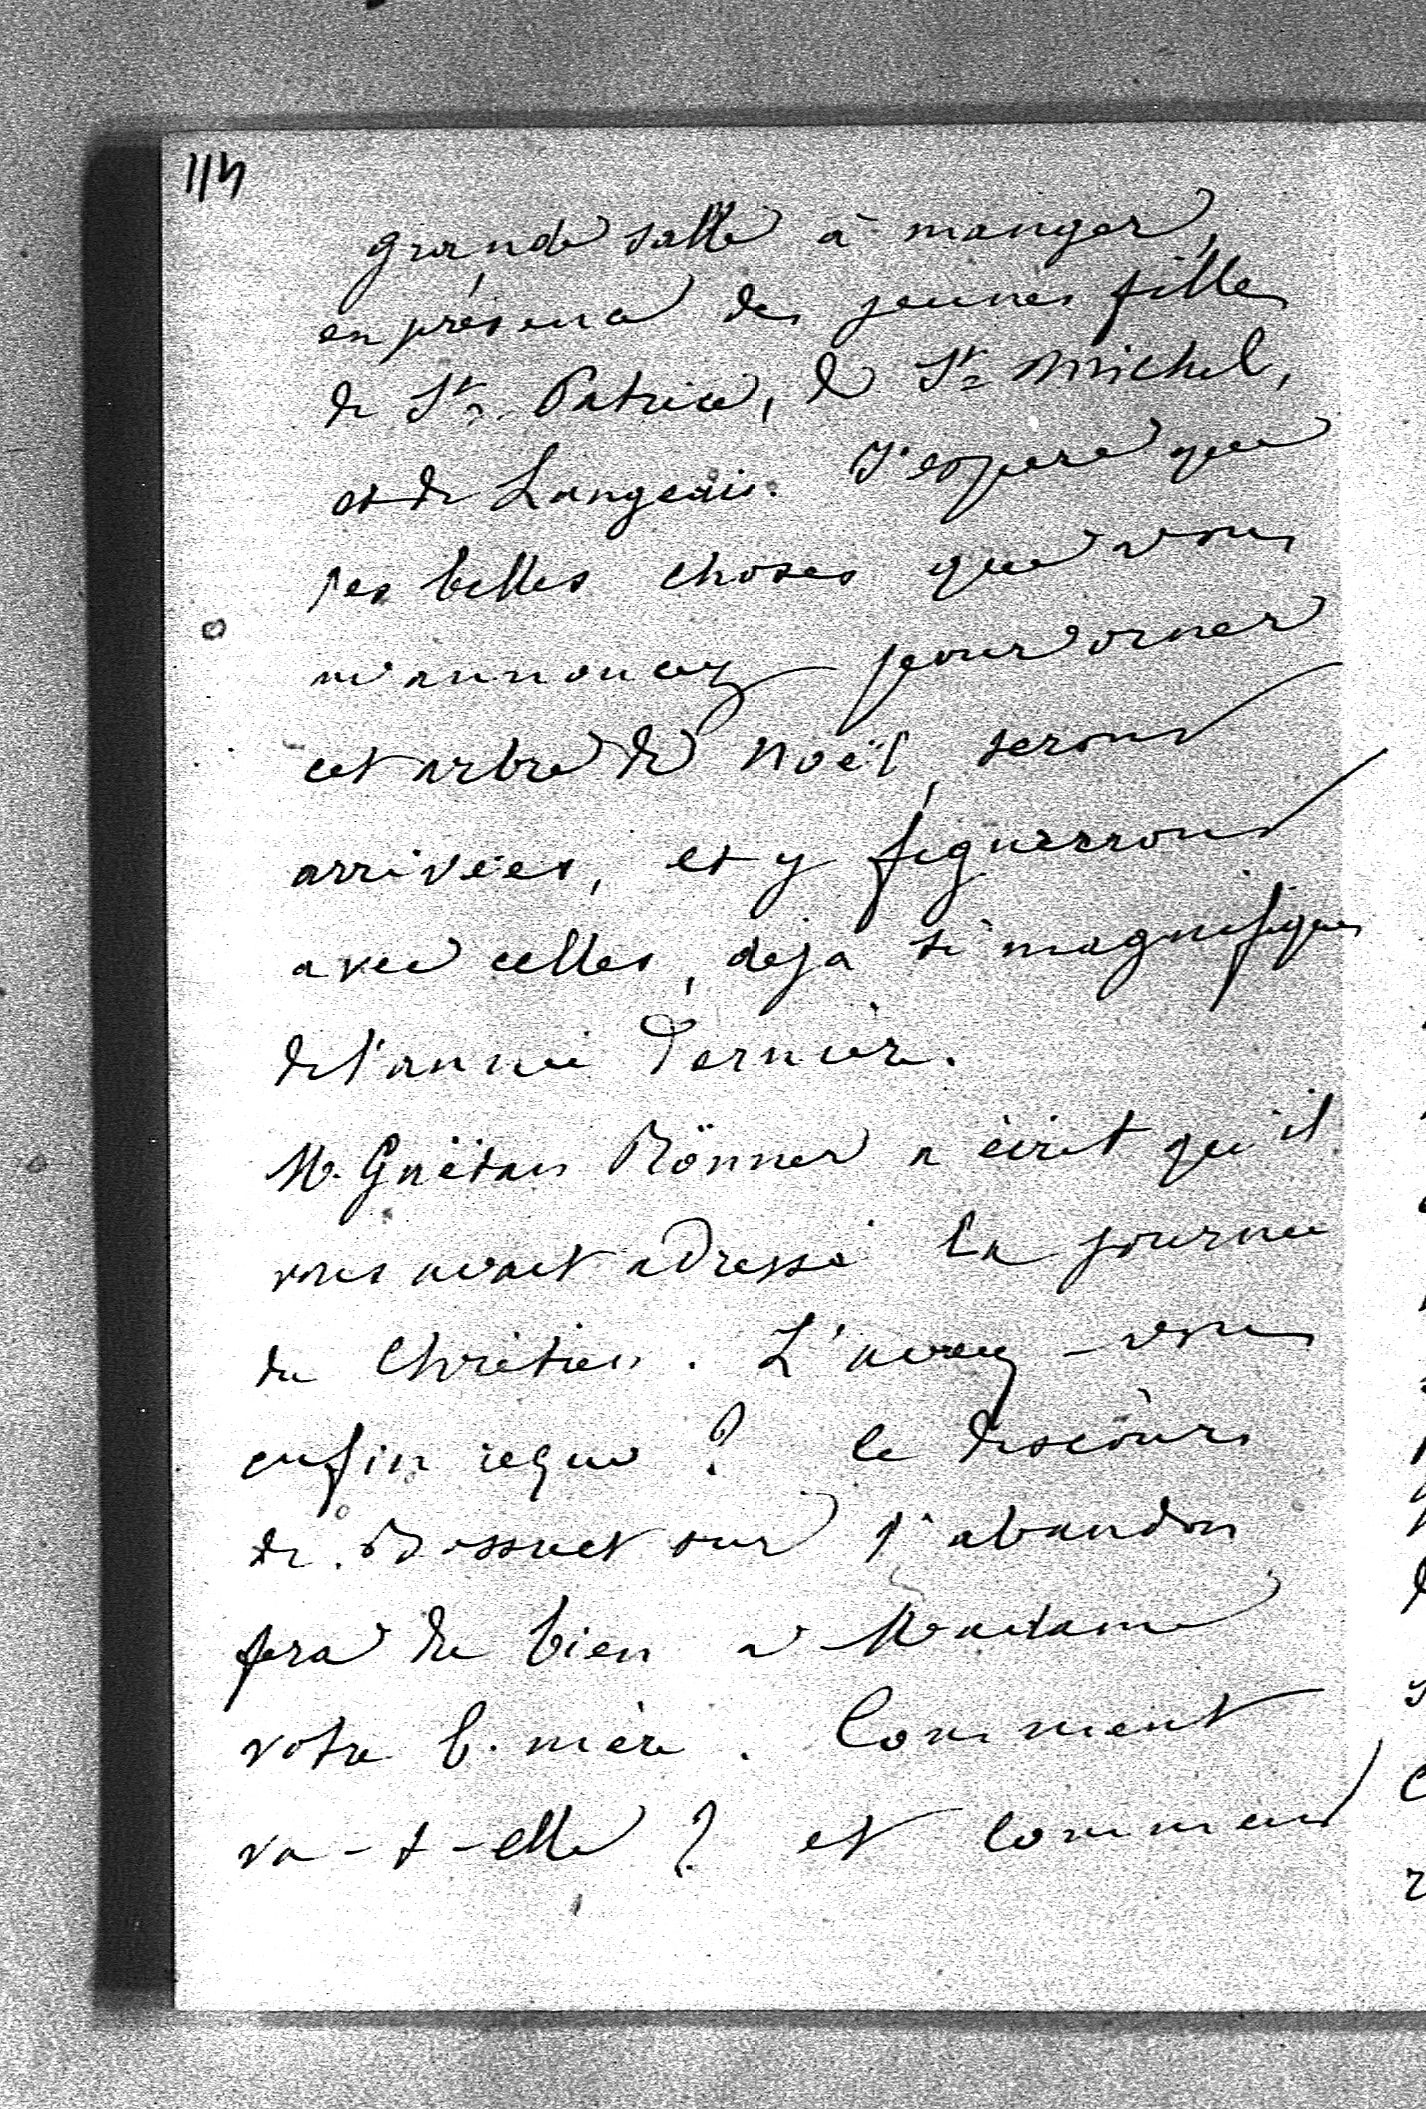 114
grande salle à manger,
en présence des jeunes filles
de St. Patrice, de St. Michel,
et de Langeais. J'espère que
les belles choses que vous
m'annoncez pour orner
cet arbre de Noël, seront
arrivées, et y figurerront
avec celles, déja si magnifiques
de l'année dernière.
M. Gaëtan Rönner a écrit qu'il
vous avait adressé la journée
du Chrétien. L'avez-vous
enfin reçue ? le discours
de Bossuet sur l'abandon
fera du bien a Madame
votre b. mère. Comment
va-t-elle ? et comment